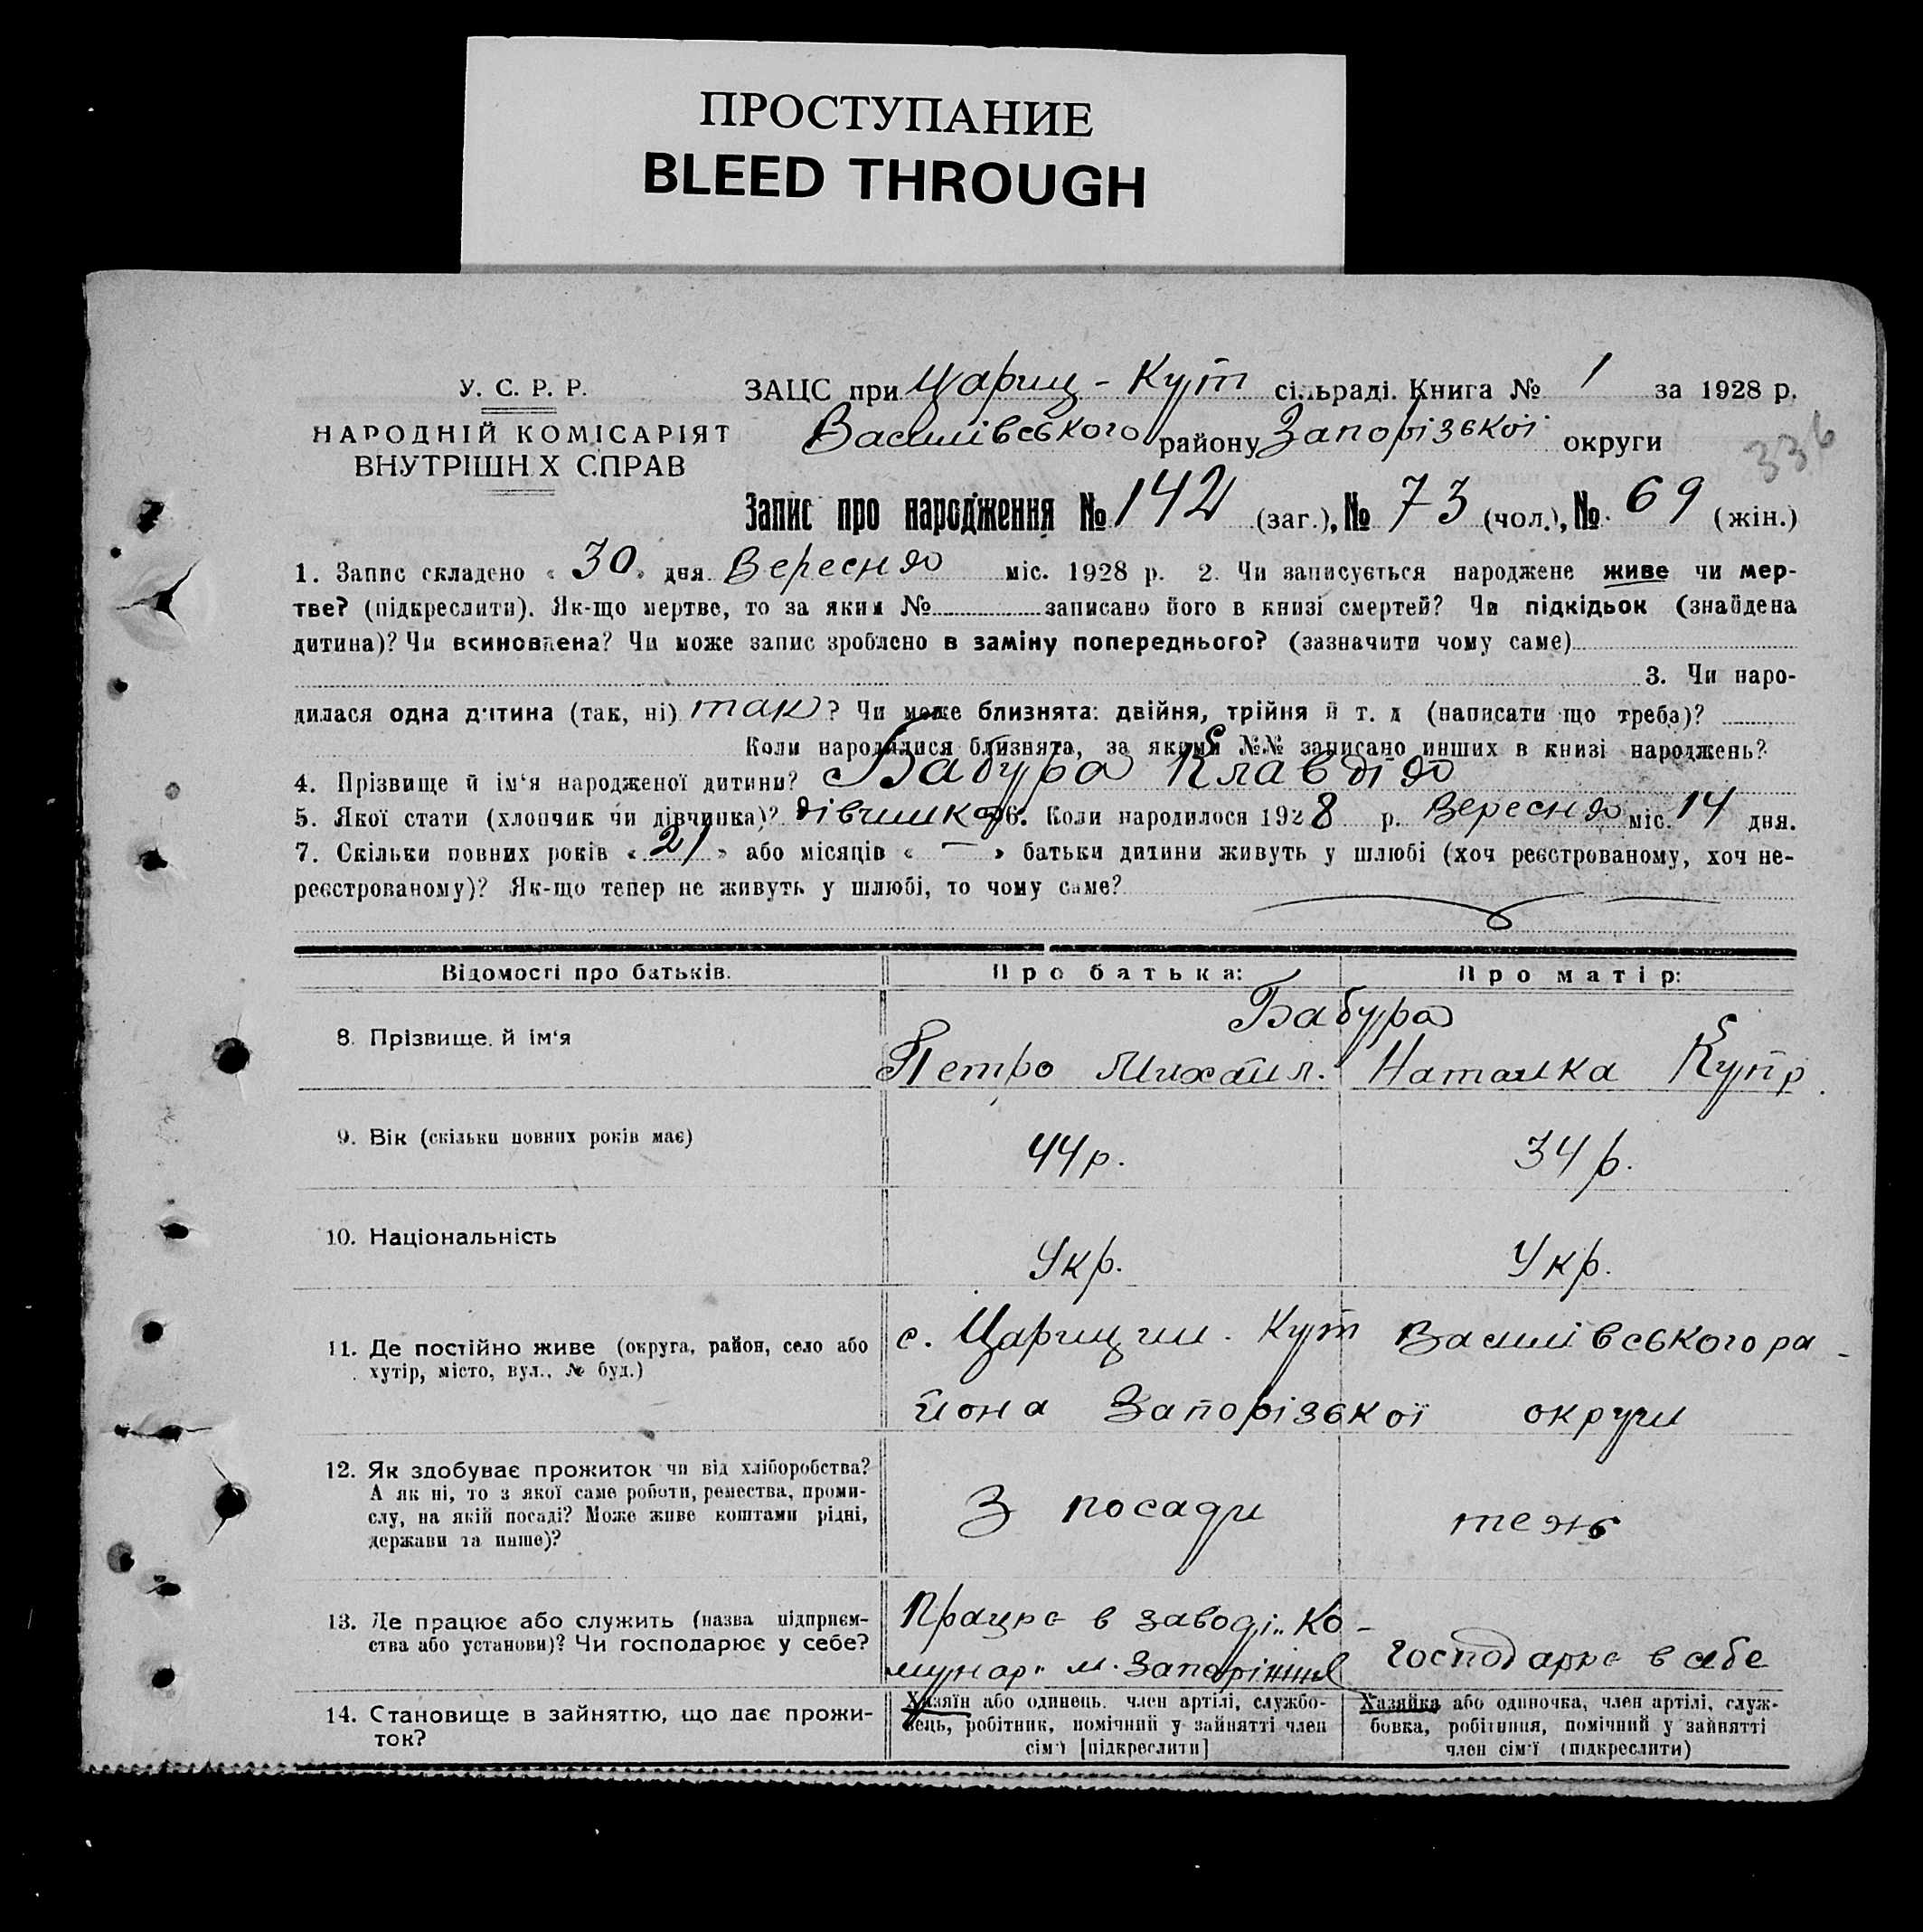 ПРОСТУПАНИЕ
BLEED THROUGH
У. С. Р. Р.
НАРОДНІЙ КОМІСАРІЯТ
ВНУТРІШНІХ СПРАВ
ЗАЦС при Цариц - Кут сільраді. Книга № 1 за 1928 р.
Василівського району Запорізської округи
336
Запис про народження № 142 (заг.), № 73 (чол.), № 69 (жін.)
1. Запис складено « 30 » дня Вересня міс. 1928 р. 2. Чи записується народжене живе чи мер-
тве? (підкреслити). Як-що мертве, то за яким № записано його в книзі смертей? Чи підкідьок (знайдена
дитина)? Чи всиновлена? Чи може запис зроблено в заміну попереднього? (зазначити чому саме)
3. Чи наро-
дилася одна дитина (так, ні) так? Чи може близнята: двійня, трійня й т. д (написати що треба)?
Коли народилися близнята, за якими №№ записано инших в книзі народжень?
4. Прізвище й ім'я народженої дитини? Бабура Клавдія
5. Якої стати (хлопчик чи дівчинка)? дівчинка 6. Коли народилося 1928 р. Вересня міс. 14 дня.
7. Скільки повних років « 21 » або місяців « — » батьки дитини живуть у шлюбі (хоч реєстрованому, хоч не-
реєстрованому)? Як-що тепер не живуть у шлюбі, то чому саме?
Відомості про батьків. Про батька: Про матір:
Бабура
8. Прізвище й ім'я Петро Михайл. Наталка Купр.
9. Вік (скільки повних років має) 44 р. 34 р.
10. Національність Укр. Укр.
11. Де постійно живе (округа, район, село або
хутір, місто, вул., № буд.)
с. Царицин. Кут Василівського ра-
йона Запорізської округи
12. Як здобуває прожиток чи від хліборобства?
А як ні, то з якої саме роботи, ремества, проми-
слу, на якій посаді? Може живе коштами рідні,
держави та инше)?
З посади теж
13. Де працює або служить (назва підприєм-
ства або установи)? Чи господарює у себе?
Працює в заводі „Ко-
мунар" м. Запоріжжя
господарює в себе
14. Становище в зайняттю, що дає прожи-
ток?
Хазяїн або одинець. член артілі, службо-
вець, робітник, помічний у зайнятті член
сім'ї [підкреслити]
Хазяйка або одиночка, член артілі, служ-
бовка, робітниця, помічний у зайнятті
член сім'ї (підкреслити)